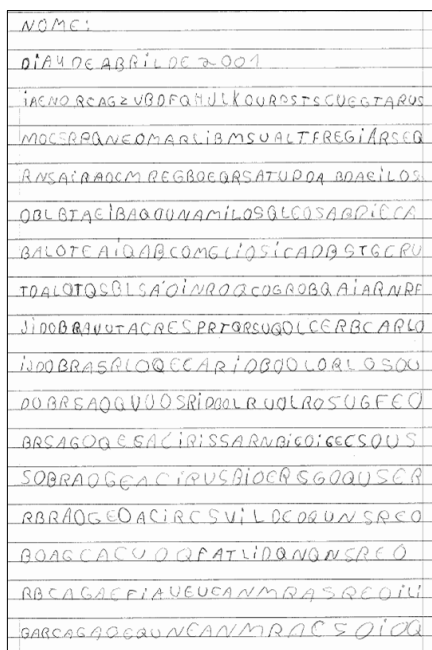 NOME:
DIA 4 DE ABRIL DE 2001
iAENORCAGZVBDFQHJLKOURPSTSCUEGTARUS
MOCSRPQNEOMARLIBMSUALTFREGIÁRSEQ
RNSAIRAOCMREGBOEQRSATUPOA BDAEILOS
OBLBTAEIBAQOUNAMILOSQLCOSABDIECA
BALOTEAIQABCOMGLIOSICADBSTGCRU
TOALOTQSBLSAOINROQCOGROBQAIARNRE
JIDOBRAVUTACRESPRTQRSUQOLCERBCARLO
IJDOBRASRLOQECARIDBOOLORLOSOU
DOBRSAOQUUOSRIDOOLRUOLROSUGFEO
BRSAGOQESACIRISSARNBIGOIGECSOUS
SOBRAOGEACIRUSBIOERSGOQUSER
RBRÃOGEOACIRCSVILDCOQUNSREO
BOAGCACUOQFATLIDQNQNSREO
RBCAGAEFIAUEUCANMRASREOILI
GARCAGAOEQUNCANMRACSOIOQ